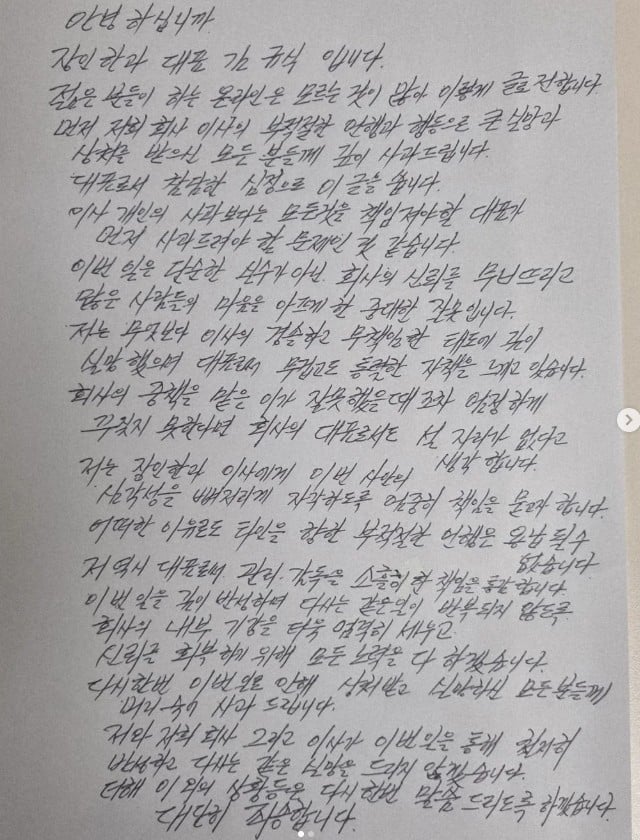 안녕하십니까
장인한과 대표 김 규식 입니다.
젊은 분들이 하는 온라인은 모르는 것이 많아 이렇게 글로 전합니다
먼저 저희 회사 이사의 부적절한 언행과 행동으로 큰 실망과
상처를 받으신 모든 분들께 깊이 사과드립니다.
대표로서 참담한 심정으로 이 글을 씁니다.
이사 개인의 사과보다는 모든것을 책임져야할 대표가
먼저 사과드려야 할 문제인 것 같습니다
이번 일은 단순한 실수가 아닌 회사의 신뢰를 무너뜨리고
많은 사람들의 마음을 아프게 한 중대한 잘못입니다.
저는 무엇보다 이사의 경솔하고 무책임한 태도에 깊이
실망했으며 대표로써 무겁고도 통렬한 자책을 느끼고 있습니다.
회사의 중책을 맡은 이가 잘못했을때 조차 엄정하게
꾸짖지 못한다면 회사의 대표로서도 설 자리가 없다고
생각합니다.
저는 장인한과 이사에게 이번 사안의
심각성을 뼈저리게 자각하도록 엄중히 책임을 묻고자 합니다.
어떠한 이유로도 타인을 향한 부적절한 언행은 용납될수
없습니다
저 역시 대표로써 관리.감독을 소홀히 한 책임을 통감합니다
이번 일을 깊이 반성하며 다시는 같은일이 반복되지 않도록
회사의 내부 기강을 더욱 엄격히 세우고
신뢰를 회복하기 위해 모든 노력을 다 하겠습니다.
다시한번 이번 일로 인해 상처받고 실망하신 모든분들께
머리 숙여 사과 드립니다.
저와 저희 회사 그리고 이사가 이번일을 통해 철저히
반성하고 다시는 같은 실망을 드리지 않겠습니다.
더해 이 외의 상황들은 다시한번 말씀 드리도록 하겠습니다
대단히 죄송합니다.